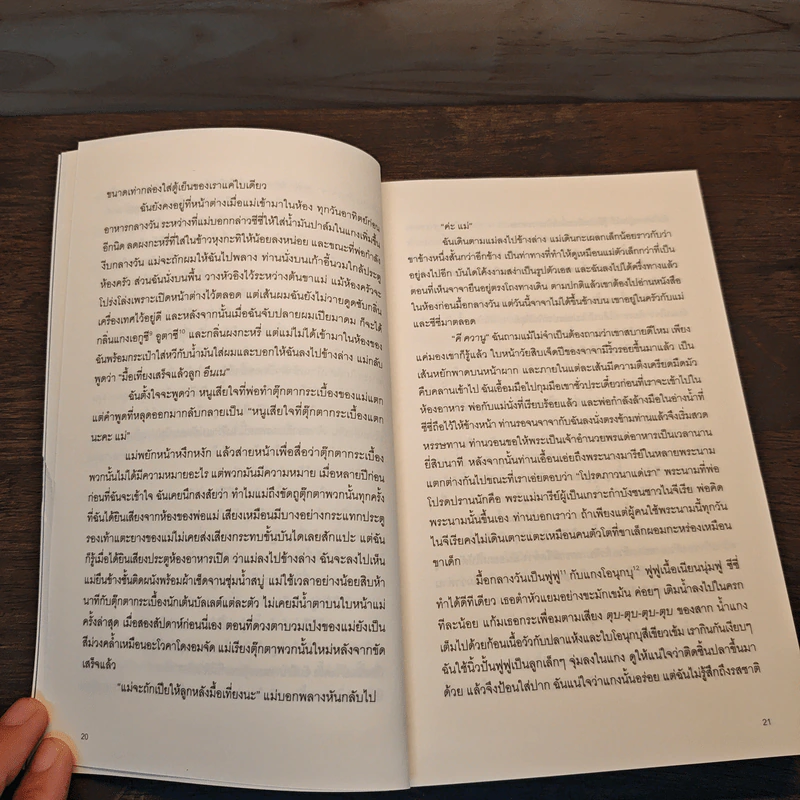 ขนาดเท่ากล่องใส่ตู้เย็นของเราแค่ใบเดียว
ฉันยังคงอยู่ที่หน้าต่างเมื่อแม่เข้ามาในห้อง ทุกวันอาทิตย์ก่อน
อาหารกลางวัน ระหว่างที่แม่บอกกล่าวซีซี่ให้ใส่น้ำมันปาล์มในแกงเพิ่มขึ้น
อีกนิด ลดผงกะหรี่ที่ใส่ในข้าวหุงกะทิให้น้อยลงหน่อย และขณะที่พ่อกำลัง
งีบกลางวัน แม่จะถักผมให้ฉันไปพลาง ท่านนั่งบนเก้าอี้นวมใกล้ประตู
ห้องครัว ส่วนฉันนั่งบนพื้น วางหัวอิงไว้ระหว่างต้นขาแม่ แม้ห้องครัวจะ
โปร่งโล่งเพราะเปิดหน้าต่างไว้ตลอด แต่เส้นผมฉันยังไม่วายดูดซับกลิ่น
เครื่องเทศไว้อยู่ดี และหลังจากนั้นเมื่อฉันจับปลายผมเปียมาดม ก็จะได้
กลิ่นแกงเอกูซี⁹ อูตาซี¹⁰ และกลิ่นผงกะหรี่ แต่แม่ไม่ได้เข้ามาในห้องของ
ฉันพร้อมกระเป๋าใส่หวีกับน้ำมันใส่ผมและบอกให้ฉันลงไปข้างล่าง แม่กลับ
พูดว่า “มื้อเที่ยงเสร็จแล้วลูก อึมเน”
ฉันตั้งใจจะพูดว่า หนูเสียใจที่พ่อทำตุ๊กตากระเบื้องของแม่แตก
แต่คำพูดที่หลุดออกมากลับกลายเป็น “หนูเสียใจที่ตุ๊กตากระเบื้องแตก
นะคะ แม่”
แม่พยักหน้าหงึกหงัก แล้วส่ายหน้าเพื่อสื่อว่าตุ๊กตากระเบื้อง
พวกนั้นไม่ได้มีความหมายอะไร แต่พวกมันมีความหมาย เมื่อหลายปีก่อน
ก่อนที่ฉันจะเข้าใจ ฉันเคยนึกสงสัยว่า ทำไมแม่ถึงขัดถูตุ๊กตาพวกนั้นทุกครั้ง
ที่ฉันได้ยินเสียงจากห้องของพ่อแม่ เสียงเหมือนมีบางอย่างกระแทกประตู
รองเท้าแตะยางของแม่ไม่เคยส่งเสียงกระทบขั้นบันไดเลยสักแปะ แต่ฉัน
ก็รู้เมื่อได้ยินเสียงประตูห้องอาหารเปิด ว่าแม่ลงไปข้างล่าง ฉันจะลงไปเห็น
แม่ยืนข้างชั้นติดผนังพร้อมผ้าเช็ดจานชุ่มน้ำสบู่ แม่ใช้เวลาอย่างน้อยสิบห้า
นาทีกับตุ๊กตากระเบื้องนักเต้นบัลเลต์แต่ละตัว ไม่เคยมีน้ำตาบนใบหน้าแม่
ครั้งล่าสุด เมื่อสองสัปดาห์ก่อนนี่เอง ตอนที่ดวงตาบวมเป่งของแม่ยังเป็น
สีม่วงคล้ำเหมือนอะโวคาโดงอมจัด แม่เรียงตุ๊กตาพวกนั้นใหม่หลังจากขัด
เสร็จแล้ว
“แม่จะถักเปียให้ลูกหลังมื้อเที่ยงนะ” แม่บอกพลางหันกลับไป
20
“ค่ะ แม่”
ฉันเดินตามแม่ลงไปข้างล่าง แม่เดินกะเผลกเล็กน้อยราวกับว่า
ขาข้างหนึ่งสั้นกว่าอีกข้าง เป็นท่าทางที่ทำให้ดูเหมือนแม่ตัวเล็กกว่าที่เป็น
อยู่ลงไปอีก บันไดโค้งงามสง่าเป็นรูปตัวเอส และฉันลงไปได้ครึ่งทางแล้ว
ตอนที่เห็นจาจายืนอยู่ตรงโถงทางเดิน ตามปกติแล้วเขาต้องไปอ่านหนังสือ
ในห้องก่อนมื้อกลางวัน แต่วันนี้จาจาไม่ได้ขึ้นข้างบน เขาอยู่ในครัวกับแม่
และซีซี่มาตลอด
“คี ควานู” ฉันถามแม้ไม่จำเป็นต้องถามว่าเขาสบายดีไหม เพียง
แค่มองเขาก็รู้แล้ว ใบหน้าวัยสิบเจ็ดปีของจาจามีริ้วรอยขึ้นมาแล้ว เป็น
เส้นหยักพาดบนหน้าผาก และภายในแต่ละเส้นมีความตึงเครียดมืดมัว
คืบคลานเข้าไป ฉันเอื้อมมือไปกุมมือเขาชั่วประเดี๋ยวก่อนที่เราจะเข้าไปใน
ห้องอาหาร พ่อกับแม่นั่งที่เรียบร้อยแล้ว และพ่อกำลังล้างมือในอ่างน้ำที่
ซีซี่ถือไว้ให้ข้างหน้า ท่านรอจนจาจากับฉันลงนั่งตรงข้ามท่านแล้วจึงเริ่มสวด
หรรษทาน ท่านวอนขอให้พระเป็นเจ้าอำนวยพรแด่อาหารเป็นเวลานาน
ยี่สิบนาที หลังจากนั้นท่านเอื้อนเอ่ยถึงพระนางมารีย์ในหลายพระนาม
แตกต่างกันไปขณะที่เราเอ่ยตอบว่า “โปรดภาวนาแด่เรา” พระนามที่พ่อ
โปรดปรานนักคือ พระแม่มารีย์ผู้เป็นเกราะกำบังชนชาวไนจีเรีย พ่อคิด
พระนามนั้นขึ้นเอง ท่านบอกเราว่า ถ้าเพียงแต่ผู้คนใช้พระนามนี้ทุกวัน
ไนจีเรียคงไม่เดินเตาะแตะเหมือนคนตัวโตที่ขาเล็กผอมกะหร่องเหมือน
ขาเด็ก
มื้อกลางวันเป็นฟูฟู¹¹ กับแกงโอนุกบุ¹² ฟูฟูเนื้อเนียนนุ่มฟู ซีซี่
ทำได้ดีทีเดียว เธอตำหัวแยมอย่างขะมักเขม้น ค่อยๆ เติมน้ำลงไปในครก
ทีละน้อย แก้มเธอกระเพื่อมตามเสียง ตุบ-ตุบ-ตุบ-ตุบ ของสาก น้ำแกง
เต็มไปด้วยก้อนเนื้อวัวกับปลาแห้งและใบโอนุกบุสีเขียวเข้ม เรากินกันเงียบๆ
ฉันใช้นิ้วปั้นฟูฟูเป็นลูกเล็กๆ จุ่มลงในแกง ดูให้แน่ใจว่าติดชิ้นปลาขึ้นมา
ด้วย แล้วจึงป้อนใส่ปาก ฉันแน่ใจว่าแกงนั้นอร่อย แต่ฉันไม่รู้สึกถึงรสชาติ
21